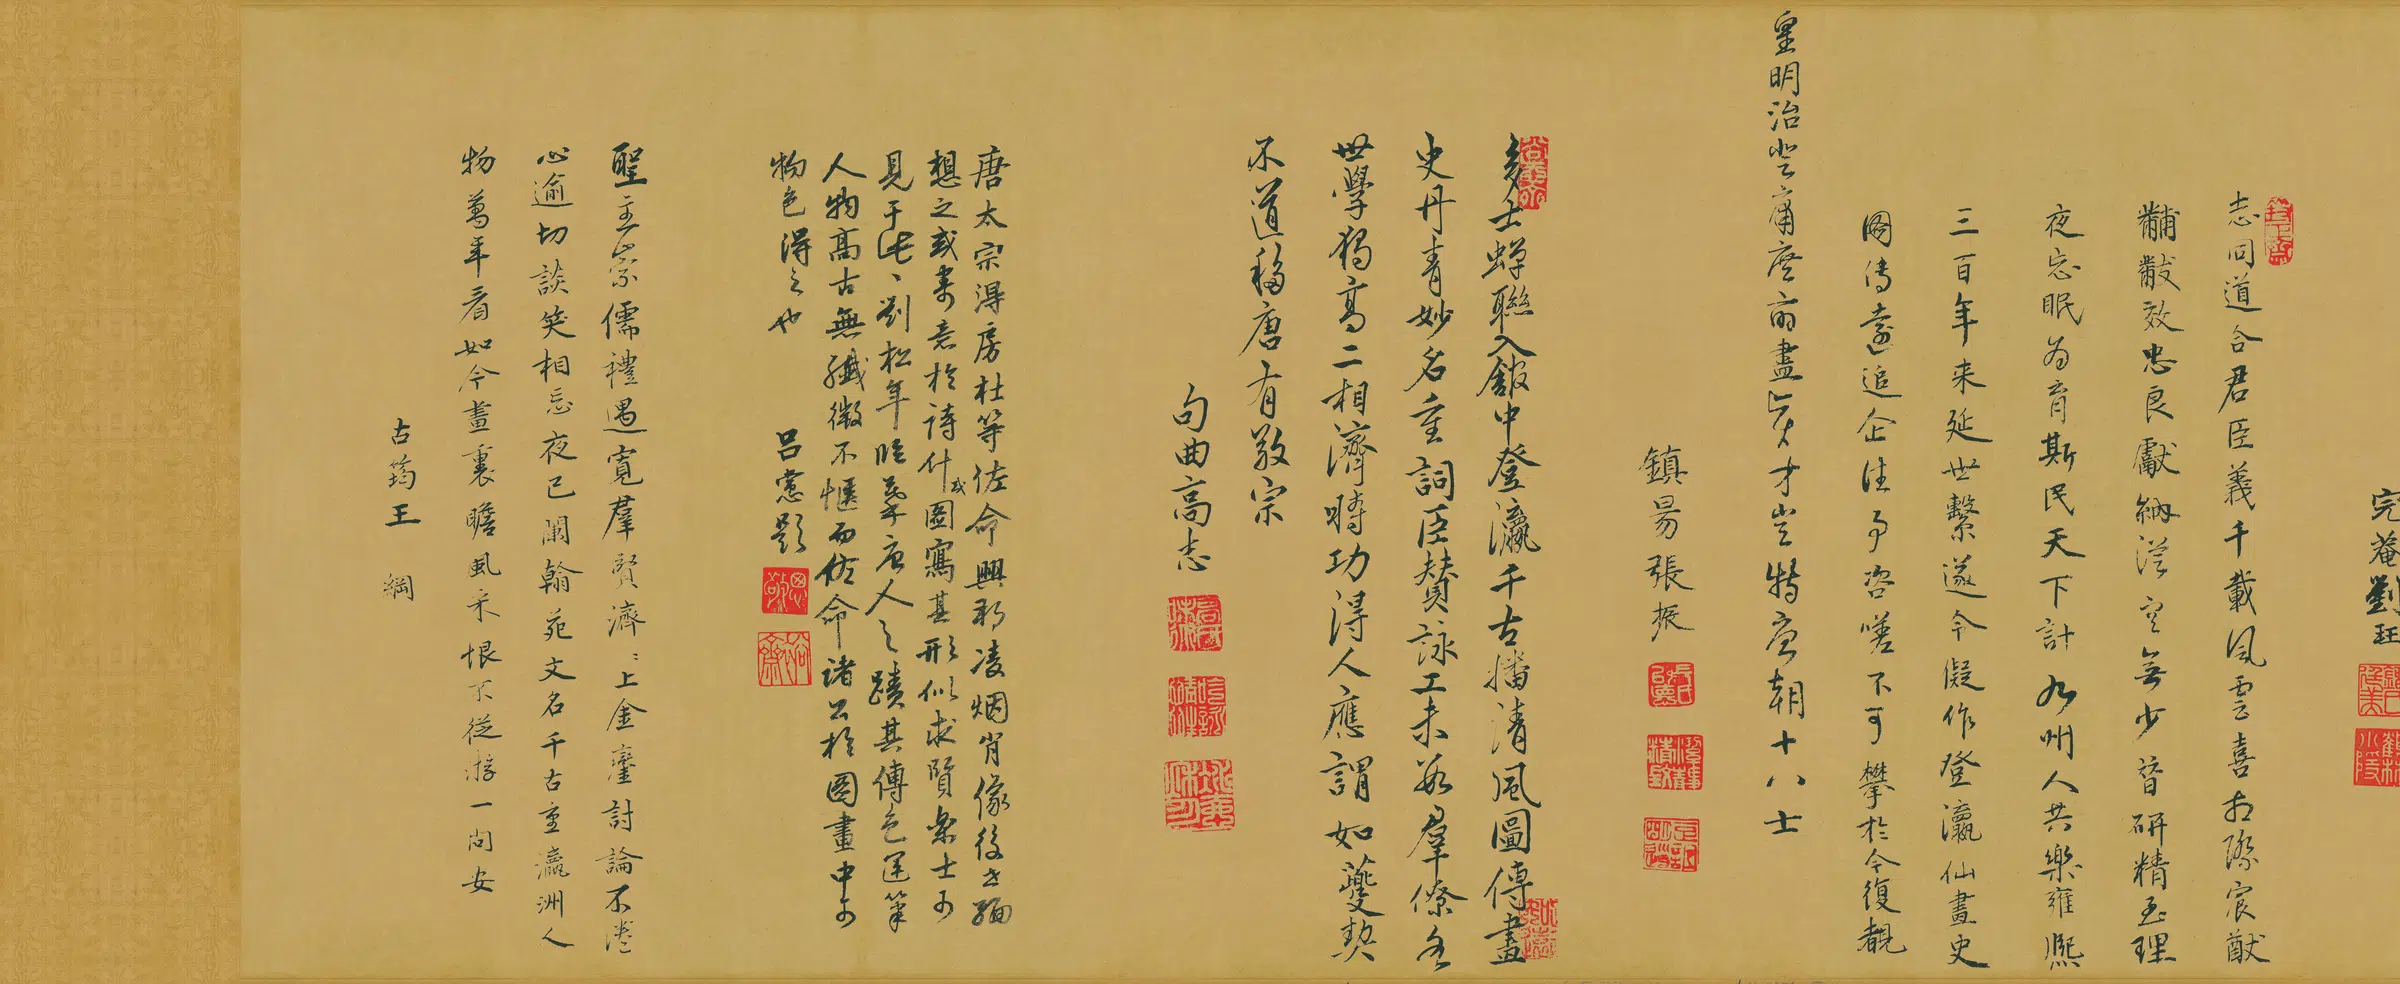 完菴劉珏
志同道合君臣義千載風雲喜相際宸猷
黼黻效忠良獻納從容無少替研精至理
夜忘眠為育斯民天下計九州人共樂雍熙
三百年来延世繫遂令儗作登瀛仙畫史
圖傳遠追企往事咨嗟不可攀於今復覩
皇明治登庸庶職盡賢才豈特唐朝十八士
鎮昜張振
多士蟬聯入館中登瀛千古播清風圖傳畫
史丹青妙名重詞臣賛詠工未數羣僚名
世學獨高二相濟時功得人應謂如夔契
不道移唐有敬宗
句曲高志
唐太宗得房杜等佐命興邦凌烟肖像後世緬
想之或寓意於詩什或圖寫其形似求賢樂士可
見于此、劉松年臨摹唐人之蹟其傳色運筆
人物高古無纖微不愜而佐命諸公於圖畫中可
物色得之也
呂㦂題
聖主崇儒禮遇寬羣賢濟、上金鑾討論不倦
心逾切談笑相忘夜已闌翰苑文名千古重瀛洲人
物萬年看如今畫裏瞻風采恨不從游一問安
古筠王綱